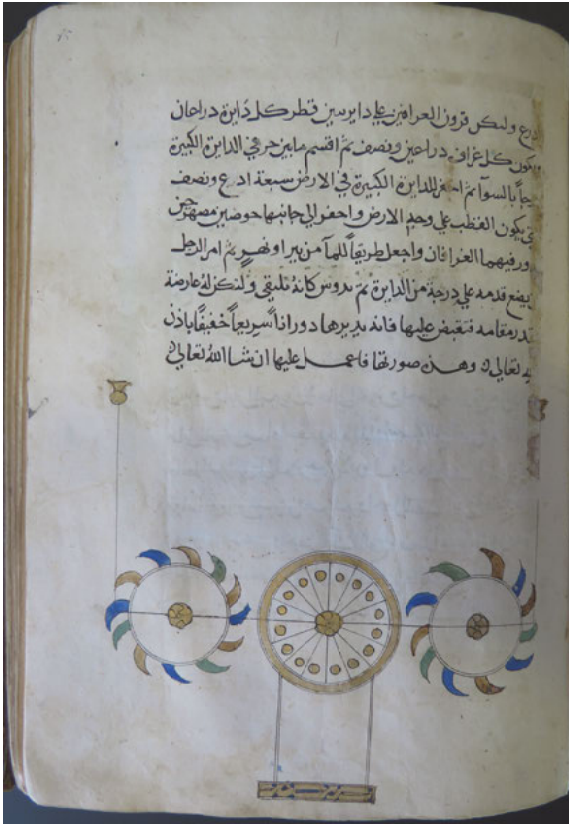 درع ولتكن قرون الغرافين علي دايرتين قطر كل دايرة دراعان
ويكون كل غراف دراعين ونصف ثم اقسم ما بين حرفي الدايرة الكبيرة
بالسوآ ثم احفر للدايرة الكبيرة في الارض سبعة ادرع ونصف
يكون القطب علي وجه الارض واحفر الي جانبها حوضين مصهرجين
يدور فيهما الغرافان واجعل طريقاً للمآ من بير او نهر ثم امر الرجل
يضع قدمه علي درجة من الدايرة ثم يدوس كانه يلتقي ولتكن له عارضة
قدر مقامه فيقبض عليها فانه يديرها دوراناً سريعاً خفيفاً باذن
تعالي وهذه صورتها فاعمل عليها ان شا الله تعالي